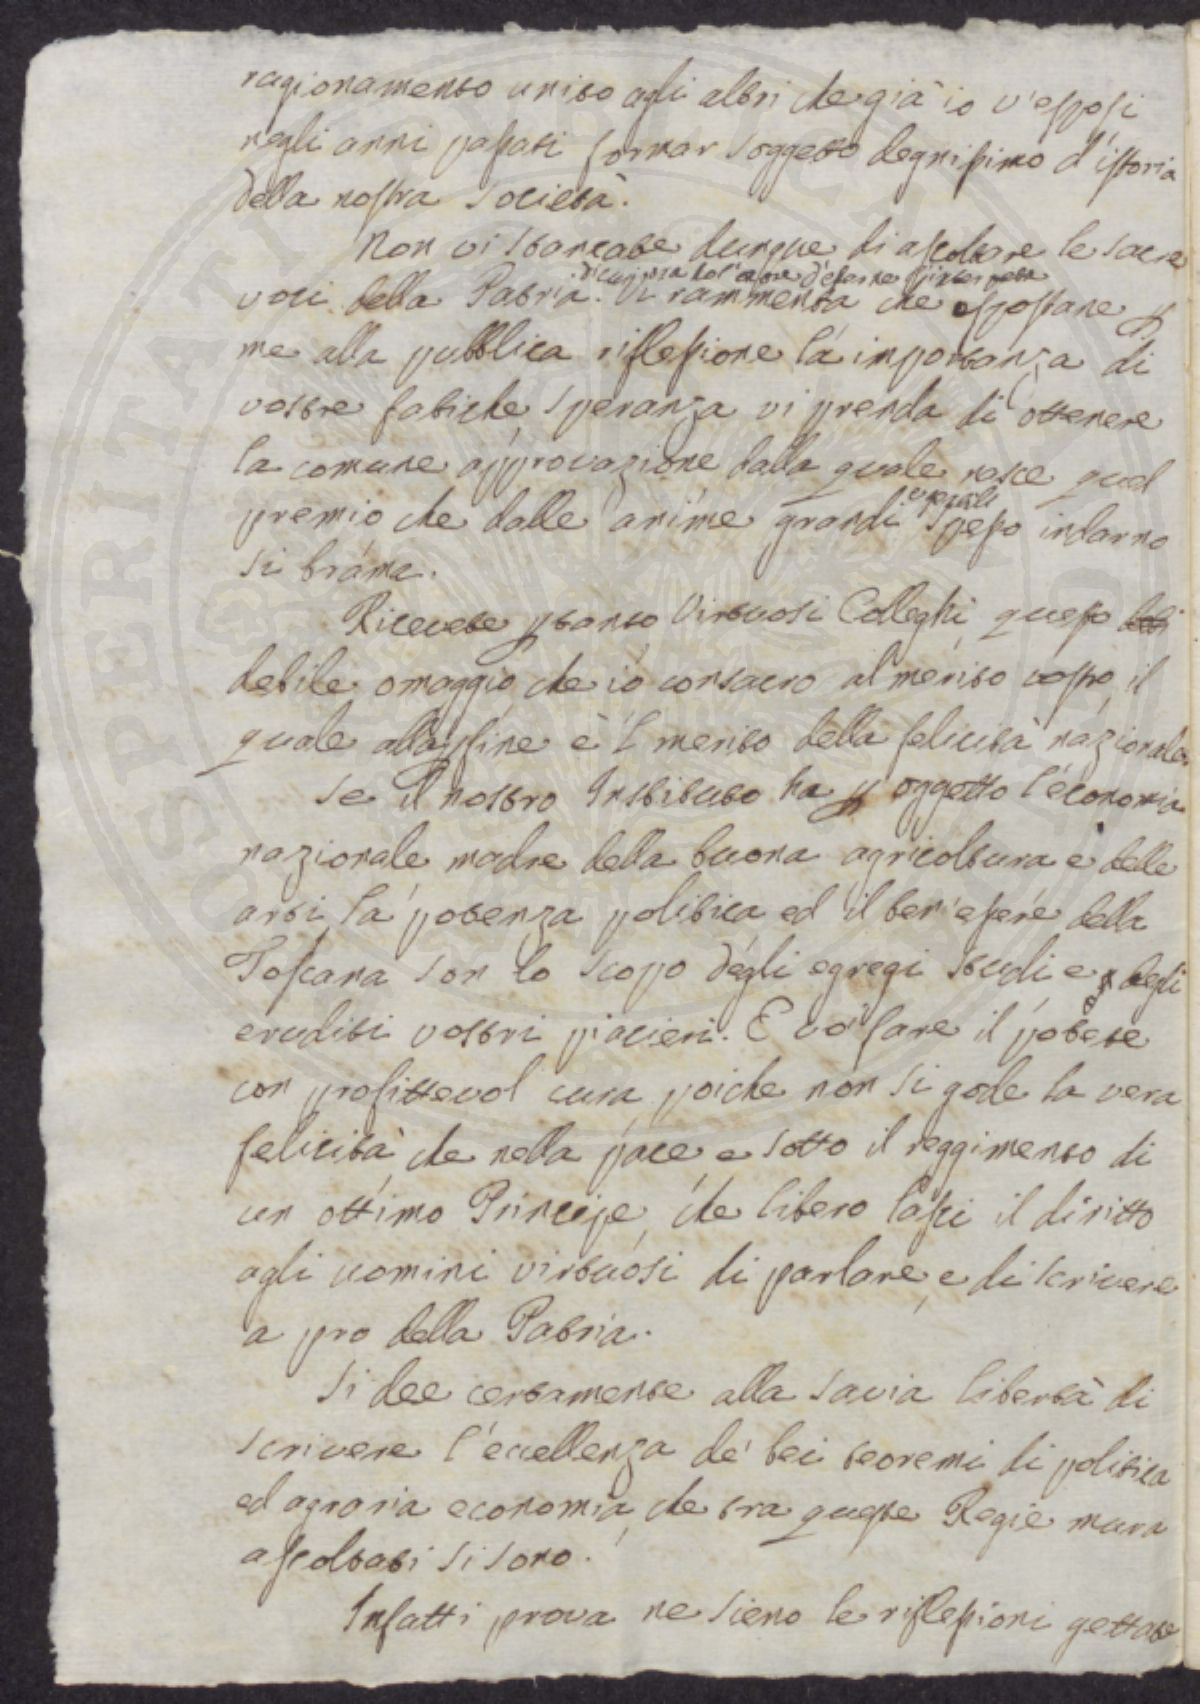 ragionamento unito agli altri che già io v'esposi
negli anni passati formar soggetto degnissimo d'istoria
della nostra società.
Non vi stancate dunque di ascoltare le sacre
di cui mia sol'
voci della Patria. Vi rammenta che espostane p
me alla pubblica riflessione la importanza di
vostre fatiche, speranza vi prenda di ottenere
la comune approvazione dalla quale nasce quel
premio che dalle anime grandi spesso indarno
si brama.
Ricevete ptanto Virtuosi Colleghi, questo
debile omaggio che io consacro al merito vostro, il
quale alla pfine è l merito della felicità nazionale.
Se il nostro Instituto ha p oggetto l'economia
nazionale madre della buona agricoltura e delle
arti, la potenza politica ed il ben'essere della
Toscana son lo scopo degli egregi studi e degli
eruditi vostri piacieri. E ciò fare il potete
con profittevol cura, poiche non si gode la vera
felicità che nella pace e sotto il reggimento di
un ottimo Principe, che libero lasci il diritto
agli uomini virtuosi di parlare, e di scrivere
a pro della Patria.
Si dee certamente alla savia libertà di
scrivere l'eccellenza de' bei teoremi di politica
ed agraria economia, che tra queste Regie mura
ascoltati si sono.
Infatti prova ne sieno le riflessioni gettate
SPERITATI